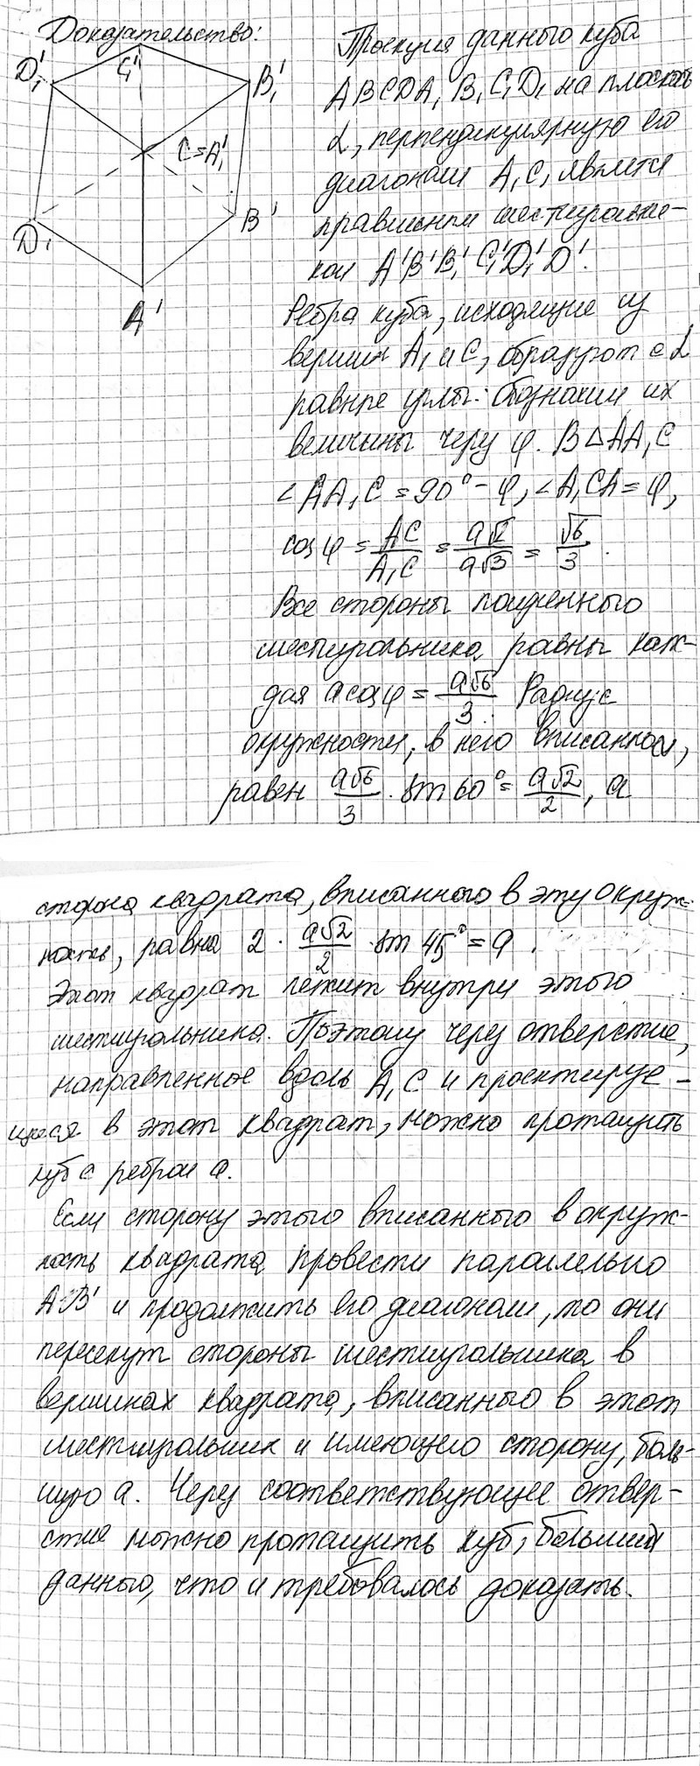 Доказательство:
D₁'
C₁'
B₁'
C=A₁'
D₁
B'
A'
Проекция данного куба
ABCDA₁B₁C₁D₁ на плоскость
α, перпендикулярную его
диагонали A₁C, является
правильным шестиугольни-
ком A'B'B₁'C₁'D₁'D'.
Ребра куба, исходящие из
вершин A₁ и C, образуют с α
равные углы. Обозначим их
величины через φ. В △AA₁C
∠AA₁C = 90° - φ, ∠A₁CA = φ,
cos φ = AC/A₁C = a√2/a√3 = √6/3.
Все стороны полученного
шестиугольника равны каж-
дая a cos φ = a√6/3. Радиус
окружности, в него вписанной,
равен a√6/3 · sin 60° = a√2/2, а
сторона квадрата, вписанного в эту окруж-
ность, равна 2 · a√2/2 · sin 45° = a.
Этот квадрат лежит внутри этого
шестиугольника. Поэтому через отверстие,
направленное вдоль A₁C и проектирую-
щееся в этот квадрат, можно протащить
куб с ребром a.
Если сторону этого вписанного в окруж-
ность квадрата провести параллельно
A'B' и продолжить его диагонали, то они
пересекут стороны шестиугольника в
вершинах квадрата, вписанного в этот
шестиугольник и имеющего сторону, боль-
шую a. Через соответствующее отвер-
стие можно протащить куб, больший
данного, что и требовалось доказать.